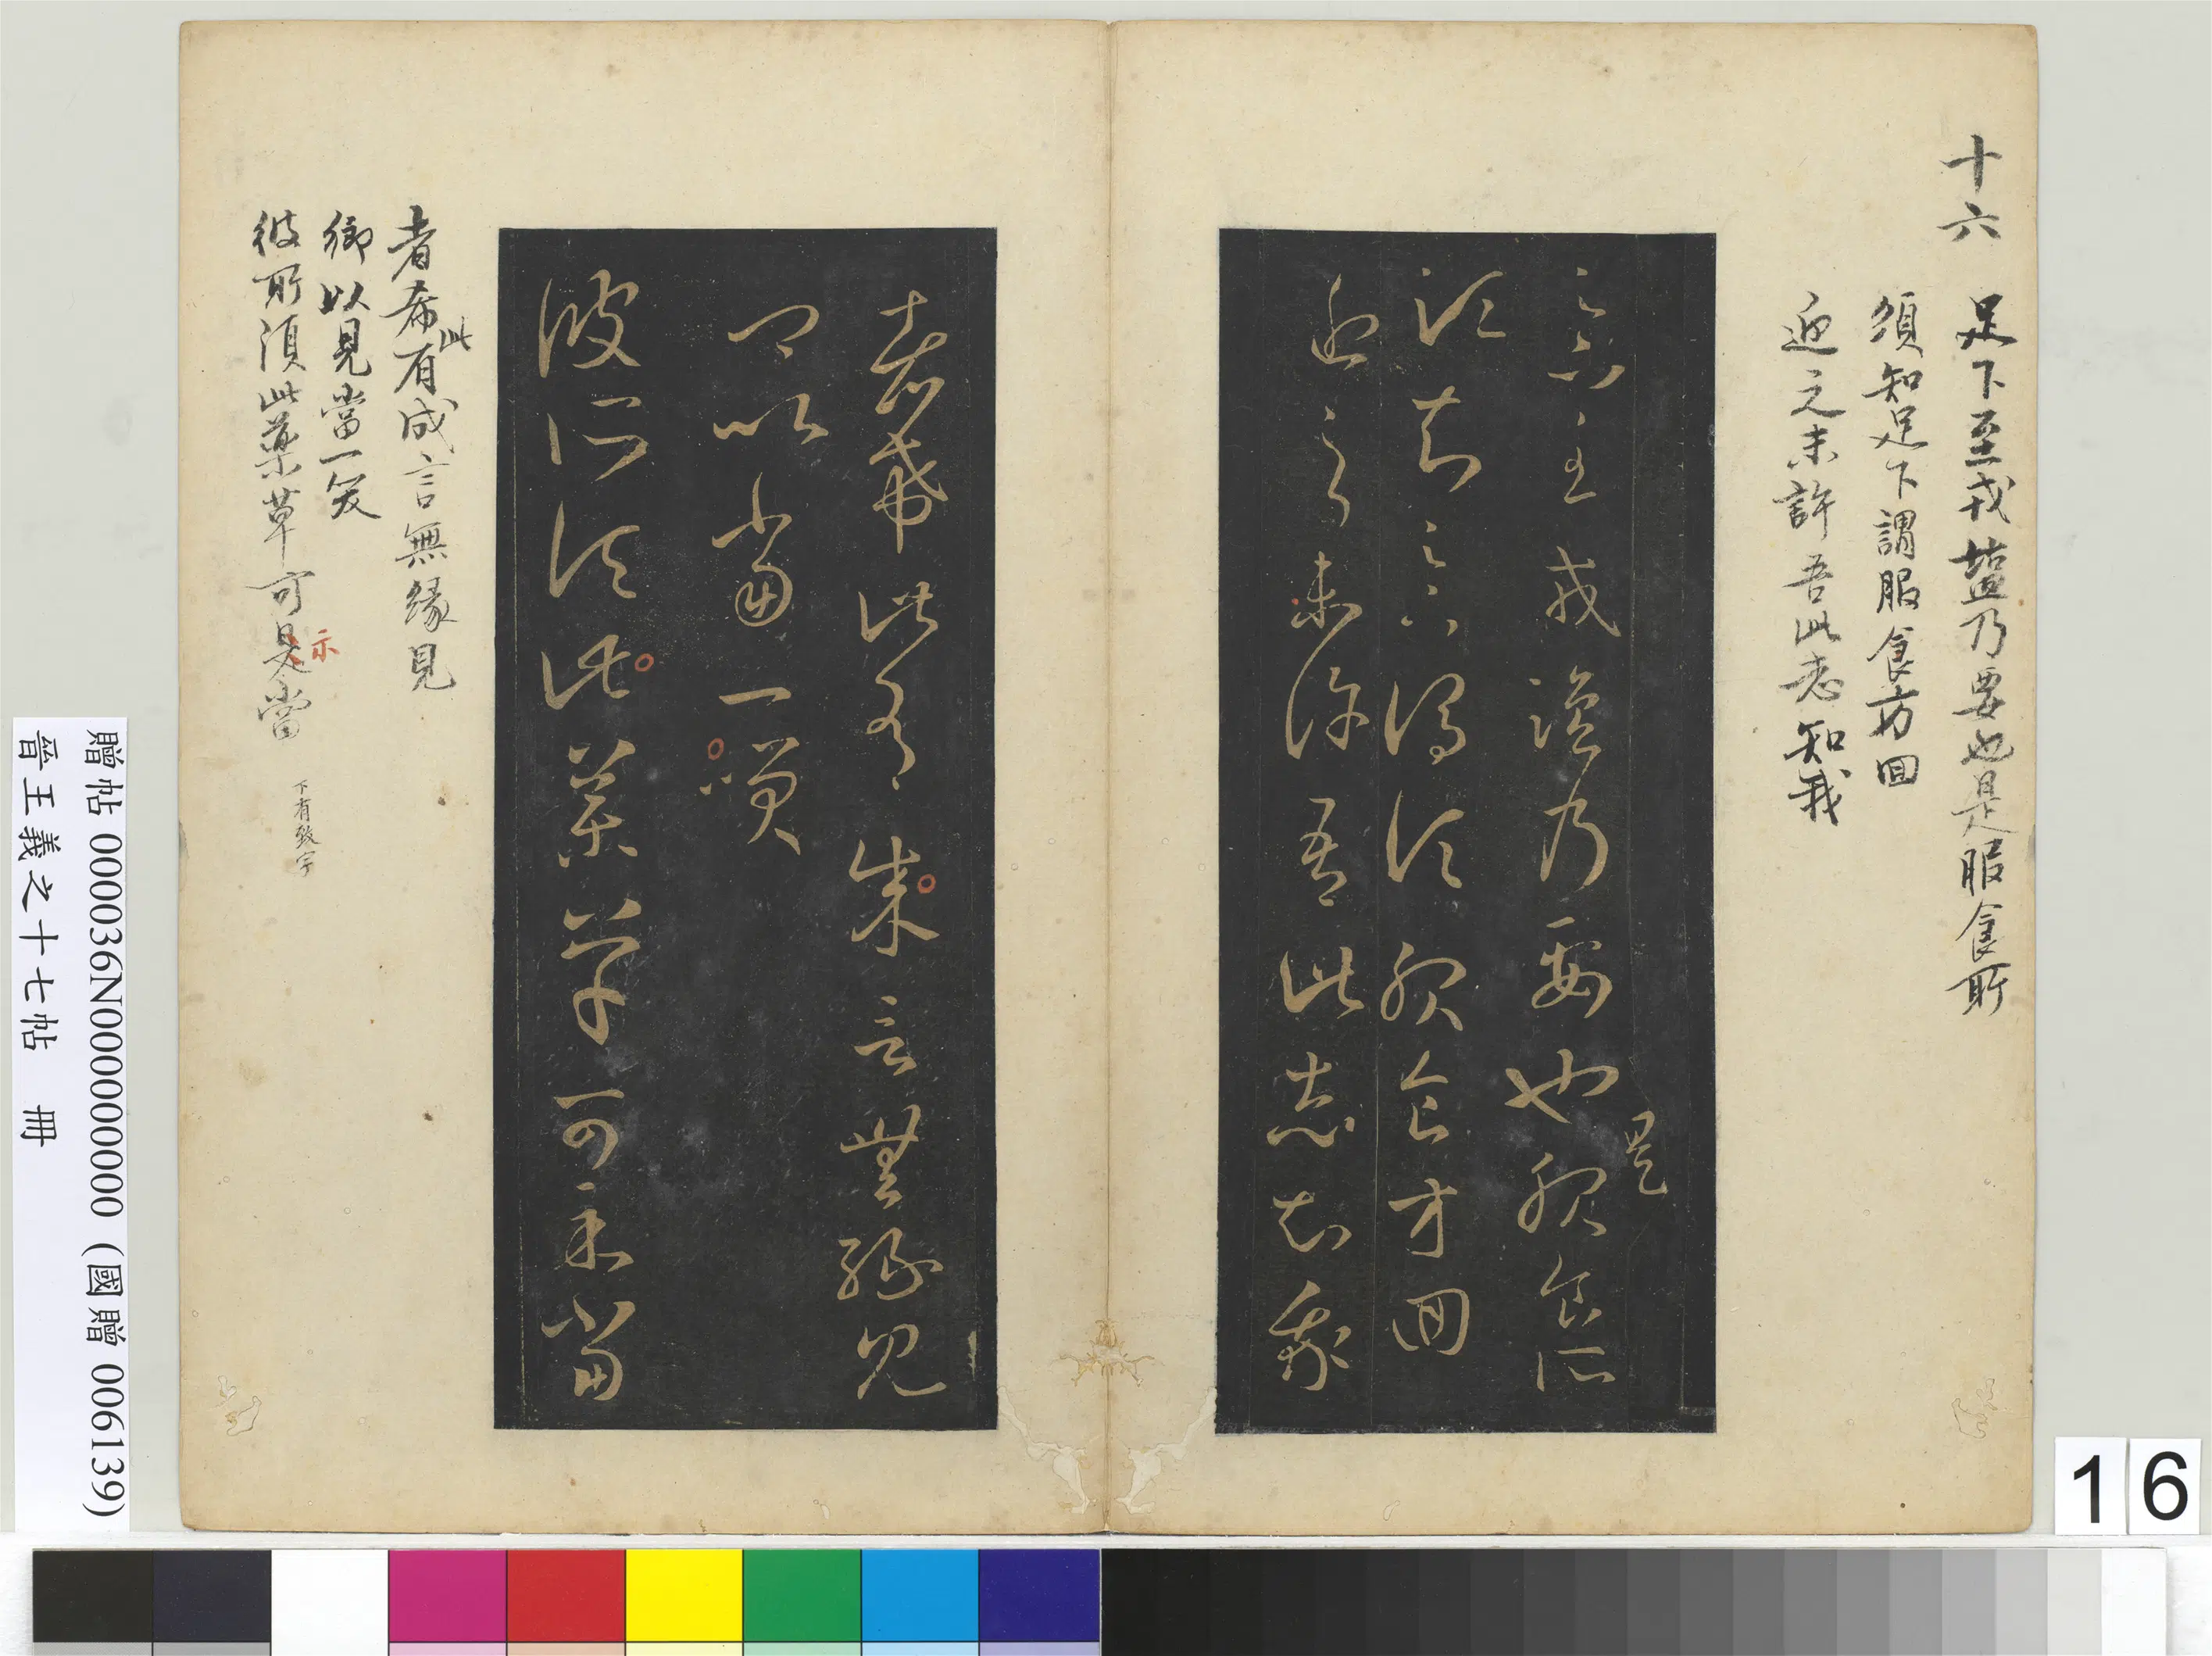 十六
足下至戎塩乃要也是服食所
須知足下謂服食方回
近之未許吾此志知我
足下至戎鹽乃要也服食所
是
須知足下謂須服食方回
近之未許吾此志知我
者希此有成言無緣見
卿以當一笑
彼所須此藥草可示當
者希有成言無緣見
此
卿以見當一笑
彼所須此藥草可是當
示
下有致字
贈帖 000036N000000000 (國贈 006139)
晉王羲之十七帖 冊
16